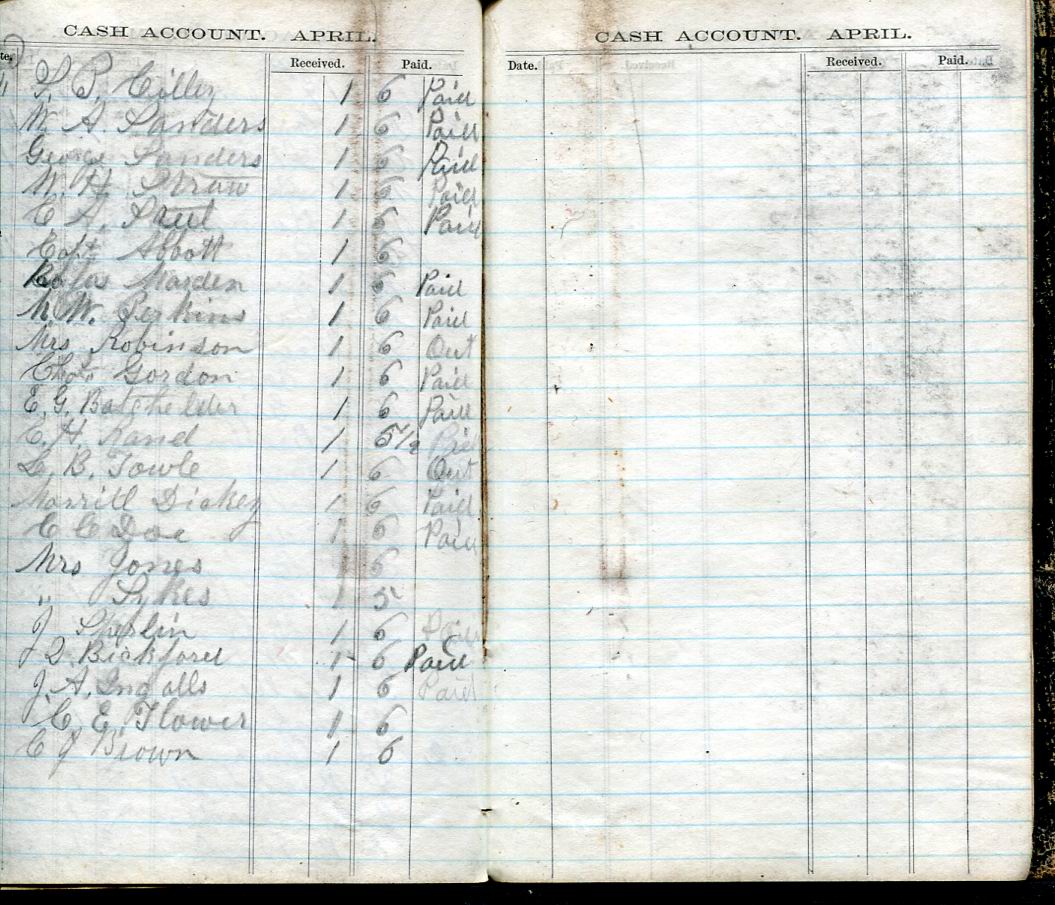 CASH ACCOUNT. APRIL.
te.
Received. Paid.
B. Cilley 1 6 Paid
W. A. Sanders 1 6 Paid
George Sanders 1 6 Paid
W. H. Straw 1 6 Paid
C. A. Paul 1 6 Paid
Capt Abbott 1 6
Marden 1 6 Paid
M. W. Perkins 1 6 Paid
Mrs Robinson 1 6 Out
Gordon 1 6 Paid
E. G. Batchelder 1 6 Paid
C. H. Rand 1 5 1/2 Paid
L. B. Towle 1 6 Out
Morrill Dickey 1 6 Paid
C C Doe 1 6 Paid
Mrs Jones 1 6
" Sykes 1 5
J. 1 6 Paid
J D. Bickford 1 6 Paid
J. A. Ingalls 1 6 Paid
C. E. Flower 1 6
C J Brown 1 6
CASH ACCOUNT. APRIL.
Date. Received. Paid.